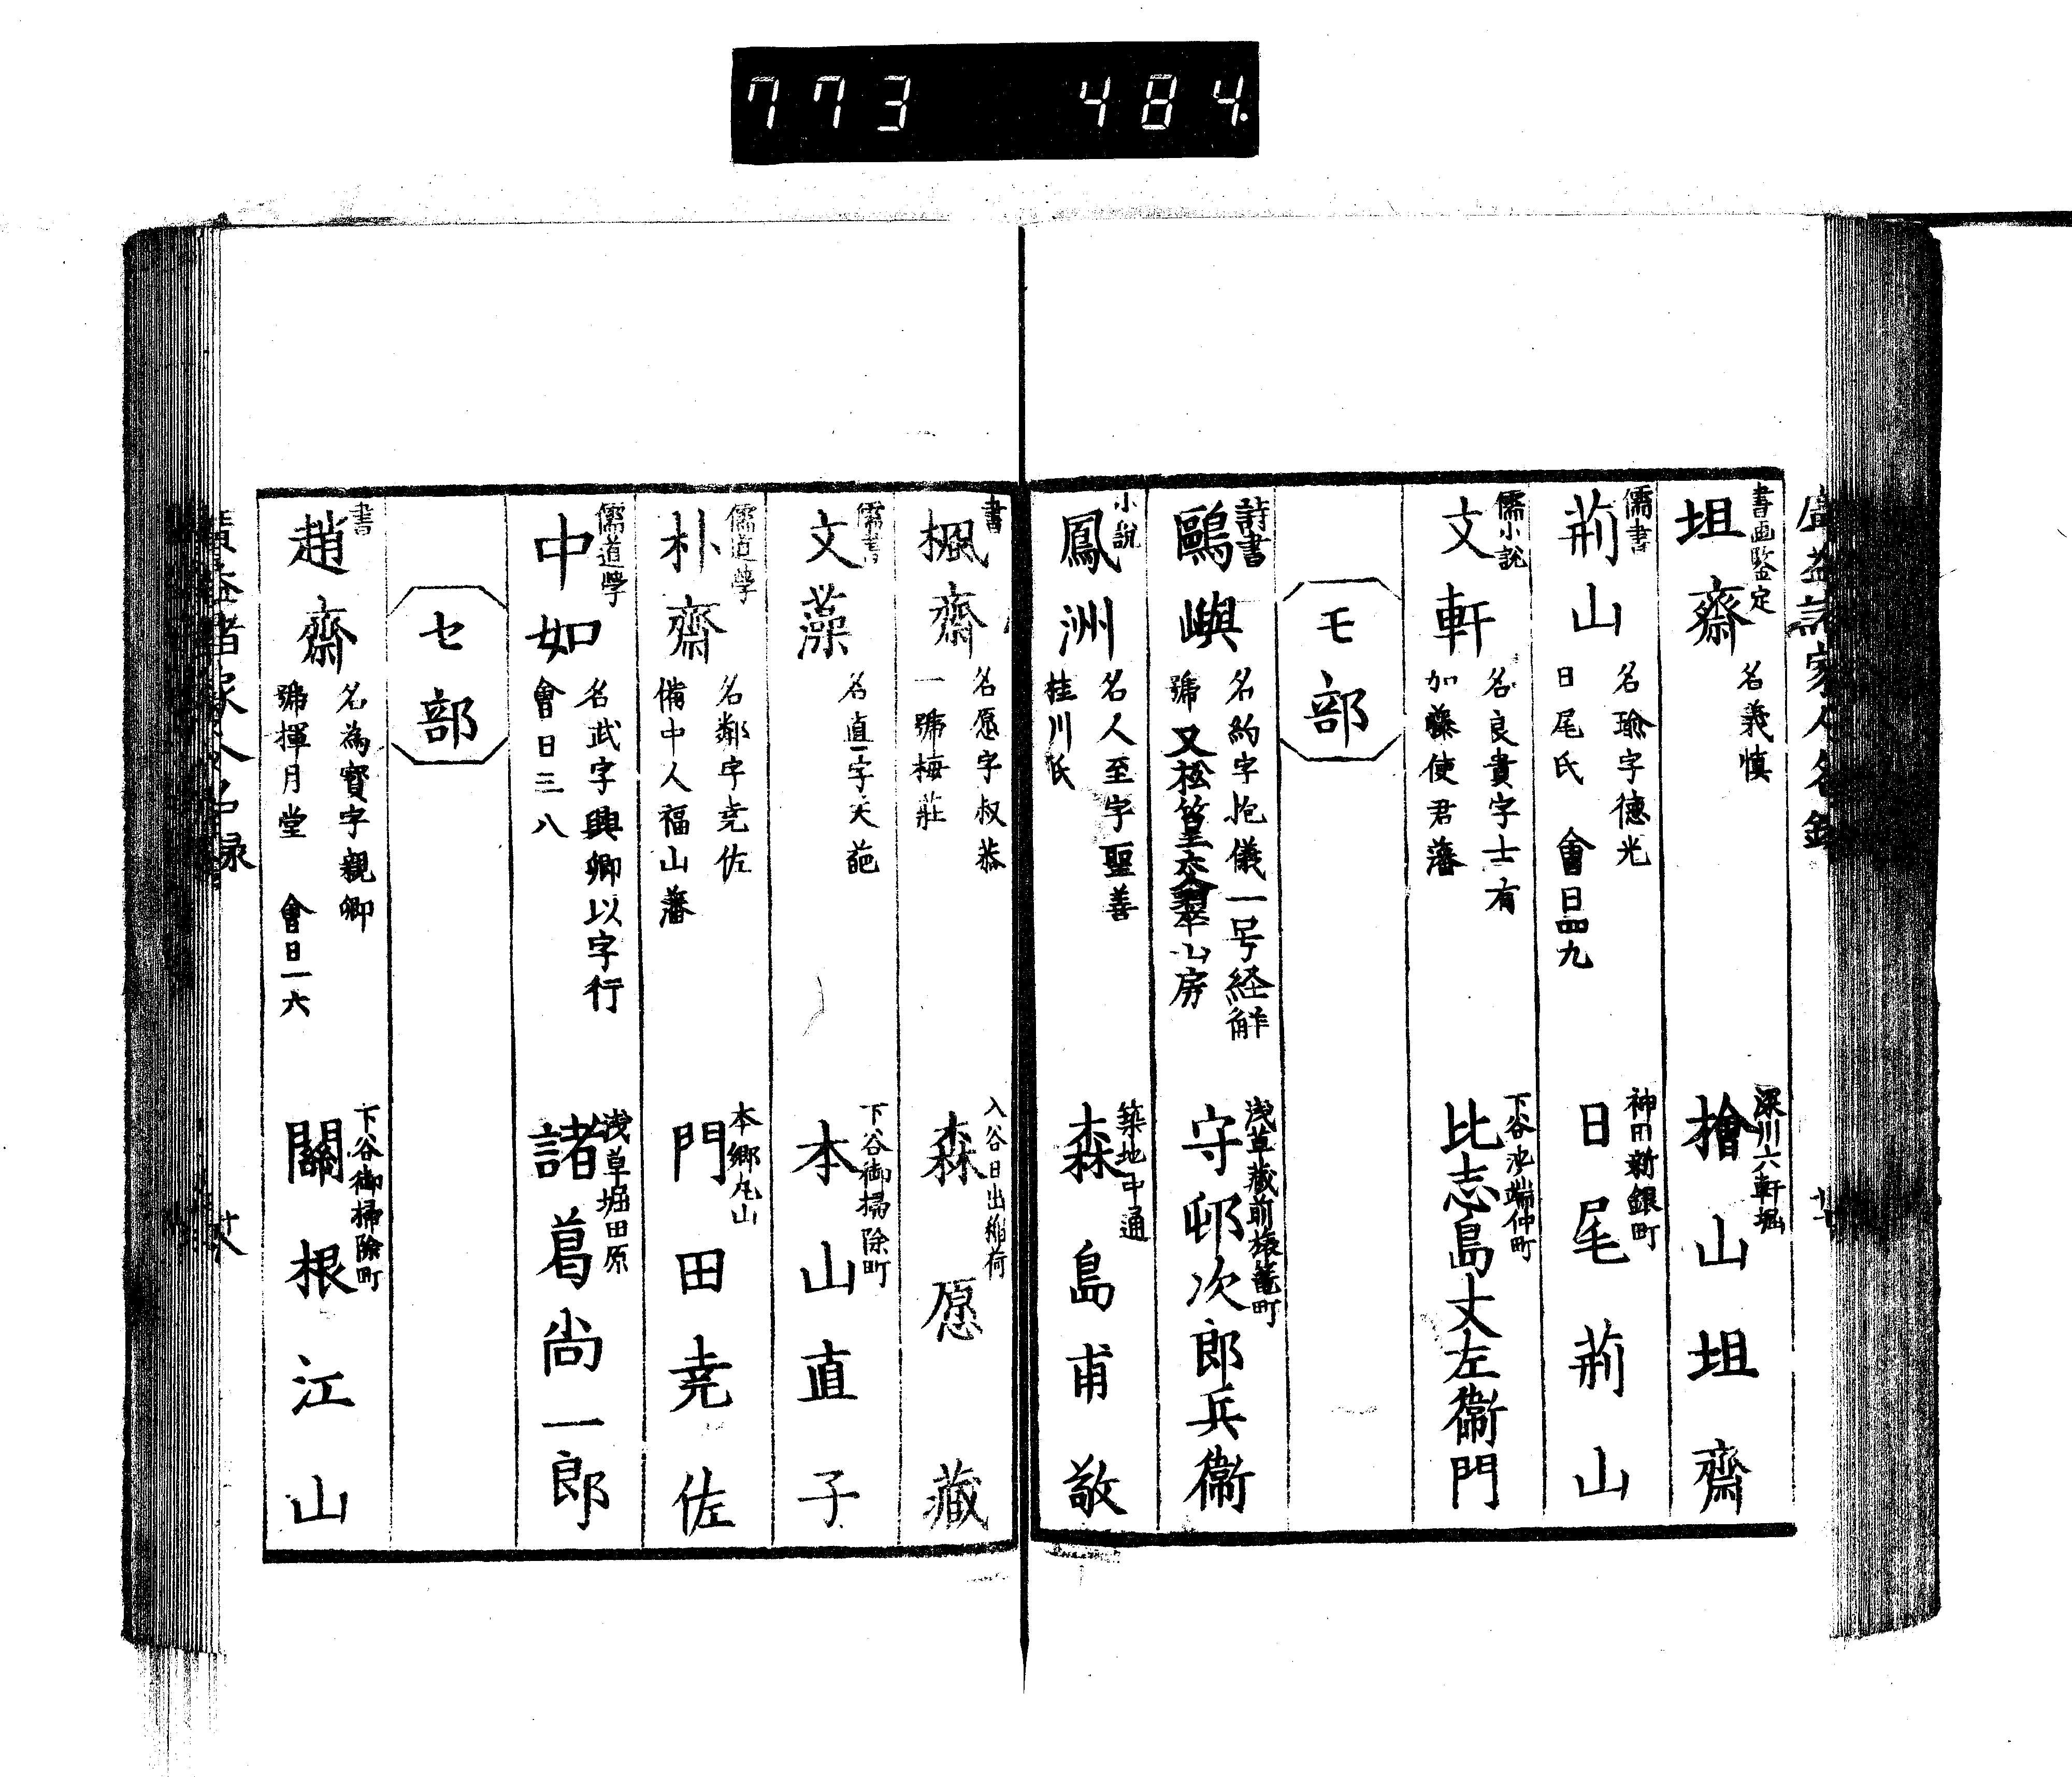 773 484.
書画鑒定
坦齋
名義慎
深川六軒堀
檜山坦齋
儒書
荊山
名瑜字德光
日尾氏 會日四九
神田新銀町
日尾荊山
儒小説
文軒
名良貴字士有
加藤使君藩
下谷池端仲町
比志島丈左衞門
モ部
詩書
鷗嶼
名約字抱儀一号経觧
號又松篁 翠山房
浅草蔵前猿篭町
守邨次郎兵衞
小説
鳳洲
名人至字聖善
桂川氏
築地中通
森島甫敬
書
楓齋
名愿字叔恭
一號梅莊
入谷日出稲荷
森愿藏
儒書
文藻
名直一字天葩
下谷御掃除町
本山直子
儒道學
朴齋
名鄰字尭佐
備中人福山藩
本郷丸山
門田尭佐
儒道學
中如
名武字興卿以字行
會日三八
浅草堀田原
諸葛尚一郎
セ部
書
趙齋
名為寶字親卿
號揮月堂 會日一六
下谷御掃除町
關根江山